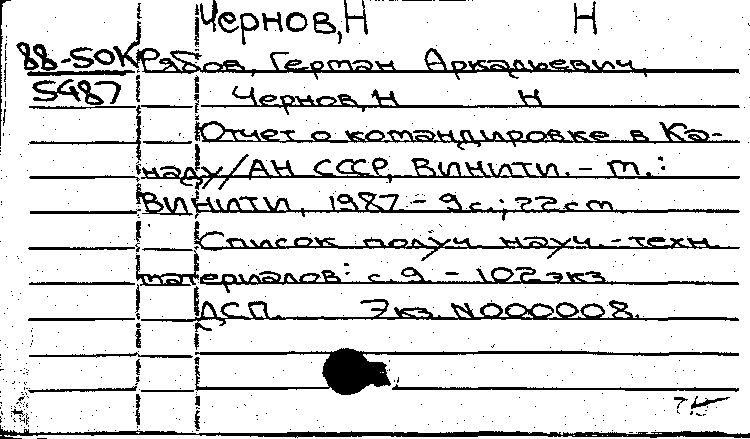 Чернов, Н Н
88-50К Рябов, Герман Аркадьевич,
5987 Чернов, Н Н
Отчет о командировке в Ка-
наду/АН СССР, ВИНИТИ. - М.:
ВИНИТИ, 1987 - 9с.; 22см
Список получ науч.-техн.
материалов: с. 9. - 102 экз
ДСП. Экз. N000008.